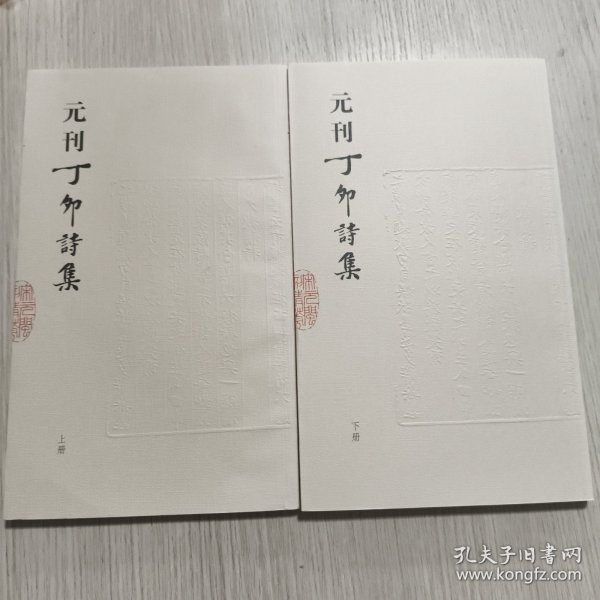 元刊丁卯詩集
上册
元刊丁卯詩集
下册
孔夫子旧书网
www.kongfz.com